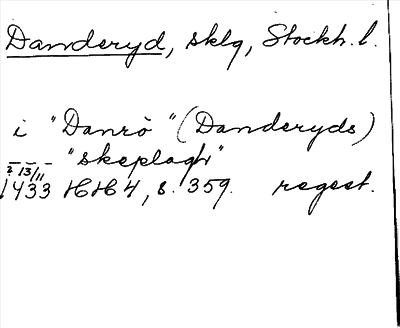 Danderyd, sklg, Stockh. l.
i "Danrö" (Danderyds)
--- "skeplagh"
? 13/11
1433 HH 4, s. 359. regest.